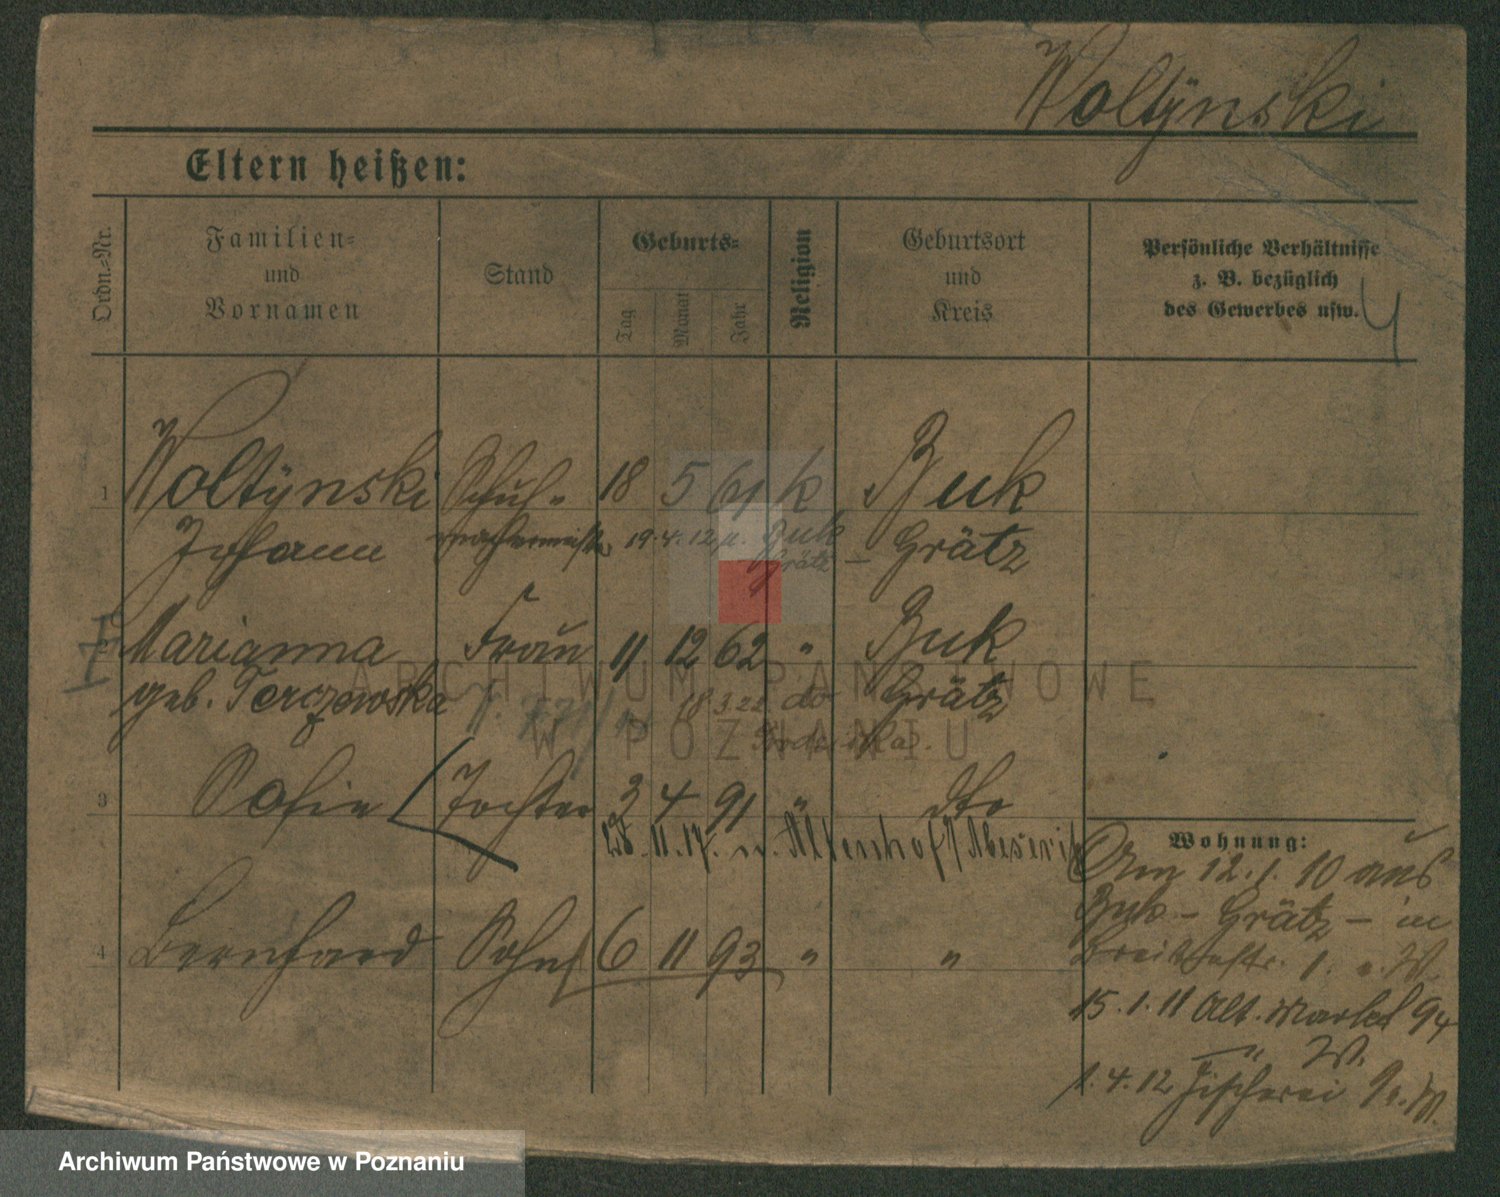 Woltÿnski
Eltern heißen:
Ordn.-Nr.
Familien-
und
Vornamen
Stand
Geburts-
Tag
Monat
Jahr
Religion
Geburtsort
und
Kreis
Persönliche Verhältnisse
z. B. bezüglich
des Gewerbes usw.
4
1 Woltÿnski Schuh- 18 5 61 k Buk
Johann machermeister 19.4.12 n. Buk Grätz
Grätz
Marianna Frau 11 12 62 " Buk
geb. Torczewska 18 3 22 do Grätz
3 Sofie Tochter 3 4 91 " dto
28.11.17. n. Altenhof / Meseritz
4 Bernhard Sohn 6 11 93 " "
Wohnung:
Am 12.1.10 aus
Buk - Grätz - in
1. W.
15.1.11 Alt. Markt 94
" W.
1.4.12 Fischerei W.
ARCHIWUM PAŃSTWOWE
W POZNANIU
Archiwum Państwowe w Poznaniu